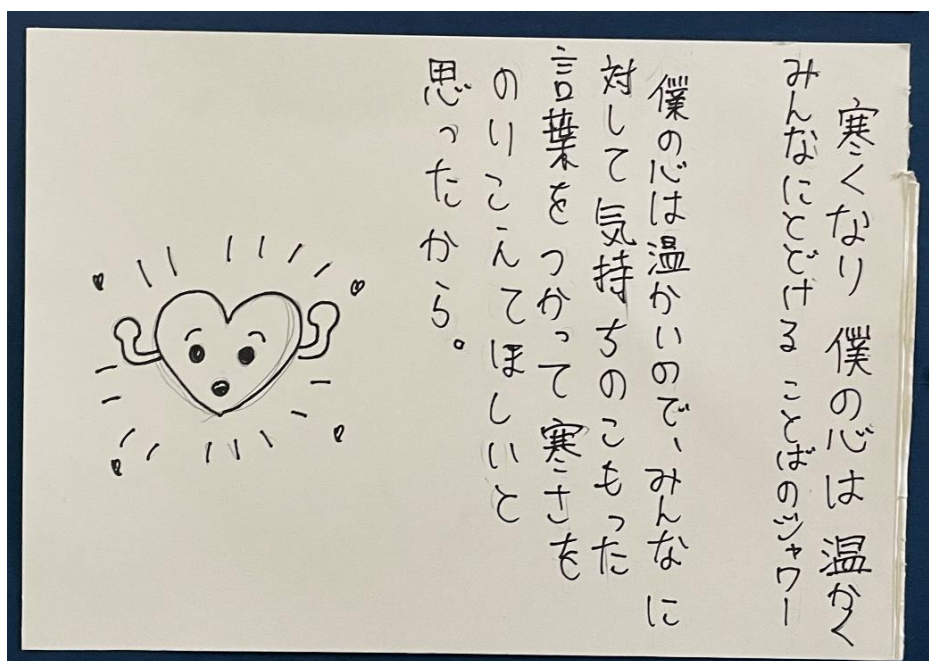 寒くなり 僕の心は 温かく
みんなにとどける ことばのシャワー
僕の心は温かいので、みんなに
対して気持ちのこもった
言葉をつかって寒さを
のりこえてほしいと
思ったから。